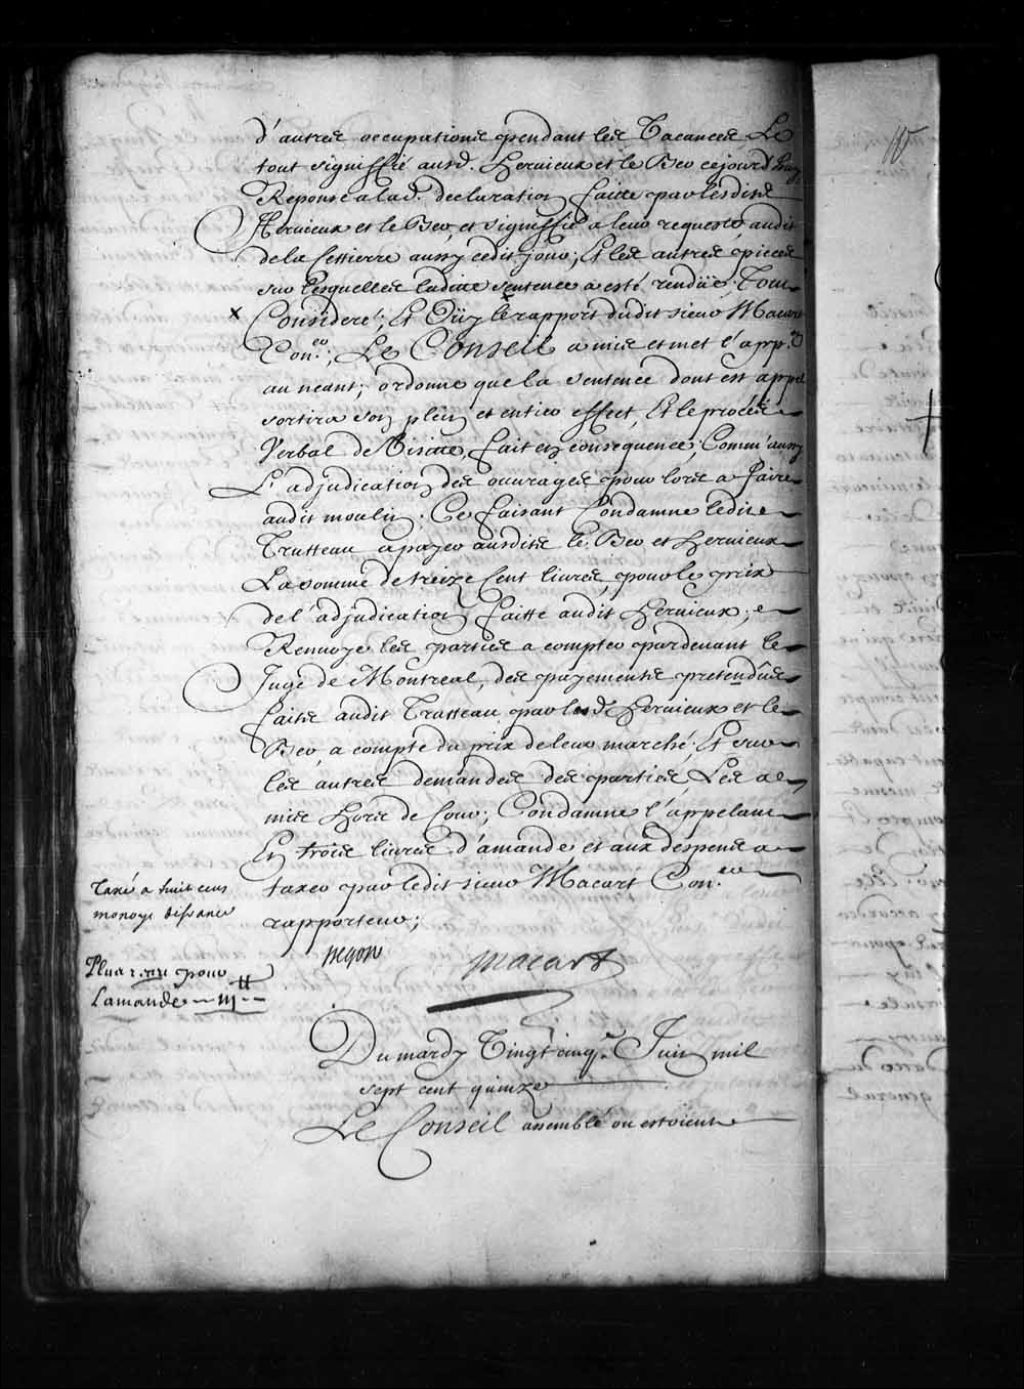 d'autres occupations pendant les Vacances Le
tout signiffié ausd. Hervieux et le Ber cejourd'huy
Reponse a lad. declaration faitte par lesdits
Hervieux et le Ber, et signiffié a leur requeste audit
de la Cettierre aussy cedit jour; Et les autres pieces
sur lesquelles ladite sentence a esté rendüe; Tout
x Consideré; Et Oüy le rapport dudit sieur Macart
Con.er; Le Conseil a mis et met l'app.on
au neant; ordonne que la sentence dont est appel
sortira son plein et entier effect, Et le procés
Verbal de Visitte, fait en consequence; Comm'aussy
L'adjudication des ouvrages pour lors a faire
audit moulin; Ce faisant Condamne ledit
Trutteau a payer ausdits le Ber et Hervieux
La somme de treize Cent livres, pour le prix
de l'adjudication faitte audit Hervieux; et
Renvoye les parties a compter pardevant le
Juge de Montreal, des payements pretendûs
faits audit Trutteau par lesd. Hervieux et le
Ber, a compte du prix de leur marché; Et sur
les autres demandes des parties, Les a
mis hors de Cour; Condamne l'appelant
En trois livres d'amande et aux despens a
taxer par ledit sieur Macart Con.er
rapporteur;
Taxé a huit cens
monoye de france
Begon Macart
Plus pour
Lamande iij tt
Du mardy Vingt cinq.e Juin mil
sept cent quinze
Le Conseil assemblé ou estoient